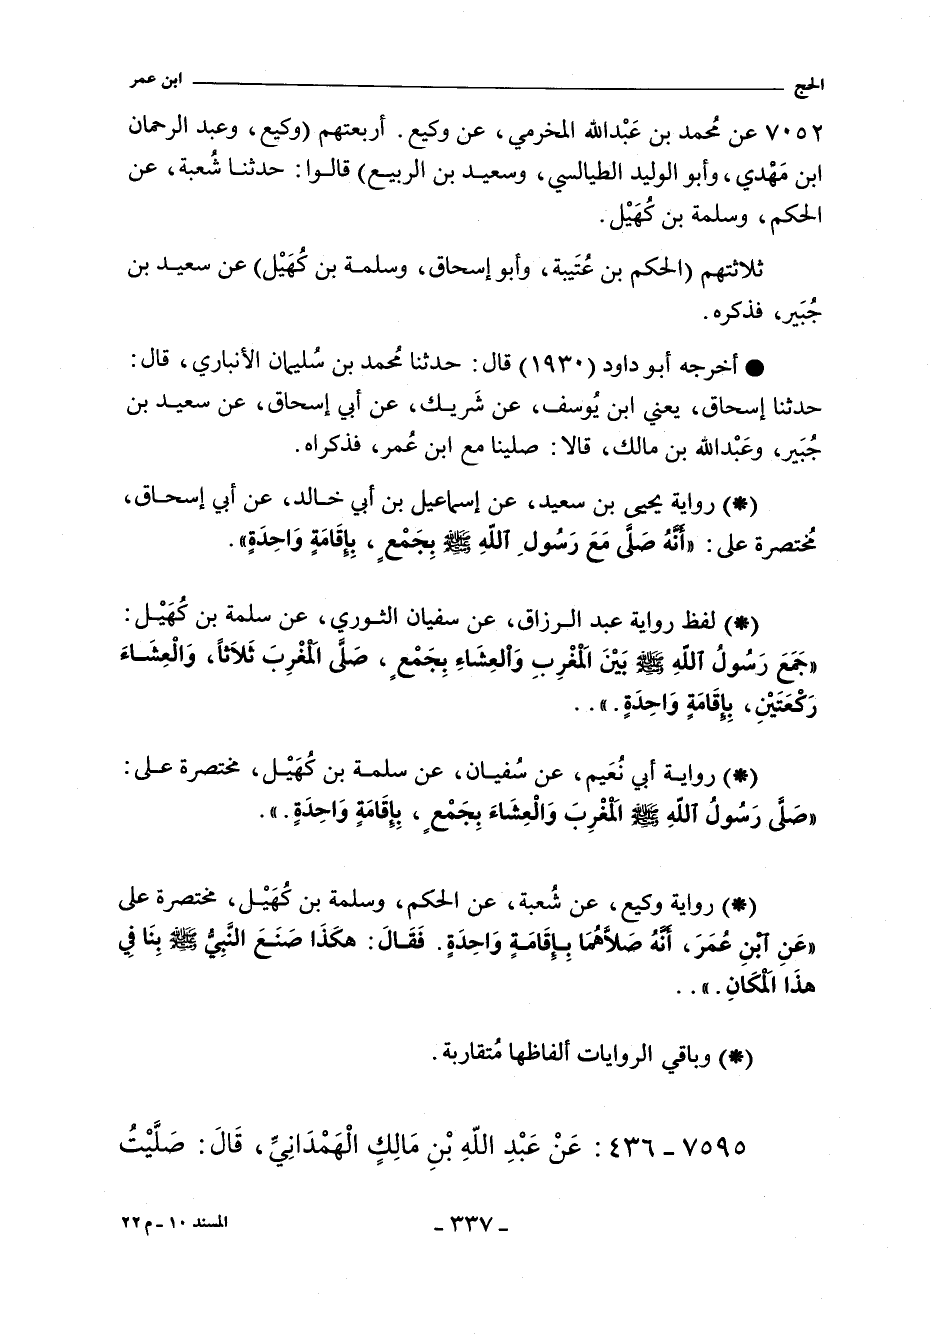 الحج ــــــــــ ابن عمر
٧٠٥٢ عن مُحمد بن عَبْدالله المخرمي، عن وكيع. أربعتهم (وكيع، وعبد الرحمان
ابن مَهْدي، وأبو الوليد الطيالسي، وسعيد بن الربيع) قالوا: حدثنا شُعبة، عن
الحكم، وسلمة بن كُهَيْل.
ثلاثتهم (الحكم بن عُتَيبة، وأبو إسحاق، وسلمة بن كُهَيْل) عن سعيد بن
جُبَير، فذكره.
● أخرجه أبو داود (١٩٣٠) قال: حدثنا مُحمد بن سُليمان الأنباري، قال:
حدثنا إسحاق، يعني ابن يُوسف، عن شَريك، عن أبي إسحاق، عن سعيد بن
جُبَير، وعَبْدالله بن مالك، قالا: صلينا مع ابن عُمر، فذكراه.
(*) رواية يحيى بن سعيد، عن إسماعيل بن أبي خالد، عن أبي إسحاق،
مُختصرة على: «أَنَّهُ صَلَّى مَعَ رَسُولِ ٱللَّهِ ﷺ بِجَمْعٍ، بِإِقَامَةٍ وَاحِدَةٍ».
(*) لفظ رواية عبد الرزاق، عن سفيان الثوري، عن سلمة بن كُهَيْل:
«جَمَعَ رَسُولُ ٱللَّهِ ﷺ بَيْنَ الْمَغْرِبِ وَٱلعِشَاءِ بِجَمْعٍ، صَلَّى الْمَغْرِبَ ثَلاَثاً، وَالْعِشَاءَ
رَكْعَتَيْنِ، بِإِقَامَةٍ وَاحِدَةٍ.»..
(*) رواية أبي نُعَيم، عن سُفيان، عن سلمة بن كُهَيْل، مختصرة على:
«صَلَّى رَسُولُ ٱللَّهِ ﷺ الْمَغْرِبَ وَالْعِشَاءَ بِجَمْعٍ، بِإِقَامَةٍ وَاحِدَةٍ.».
(*) رواية وكيع، عن شُعبة، عن الحكم، وسلمة بن كُهَيْل، مختصرة على
«عَنِ ٱبْنِ عُمَرَ، أَنَّهُ صَلاَّهُمَا بِإِقَامَةٍ وَاحِدَةٍ. فَقَالَ: هكَذَا صَنَعَ النَّبِيُّ ﷺ بِنَا فِي
هذَا الْمَكَانِ.»..
(*) وباقي الروايات ألفاظها مُتقاربة.
٧٥٩٥ ـ ٤٣٦: عَنْ عَبْدِ اللَّهِ بْنِ مَالِكٍ الْهَمْدَانِيِّ، قَالَ: صَلَّيْتُ
ـ ٣٣٧ ـ
المسند ١٠ ـ م ٢٢